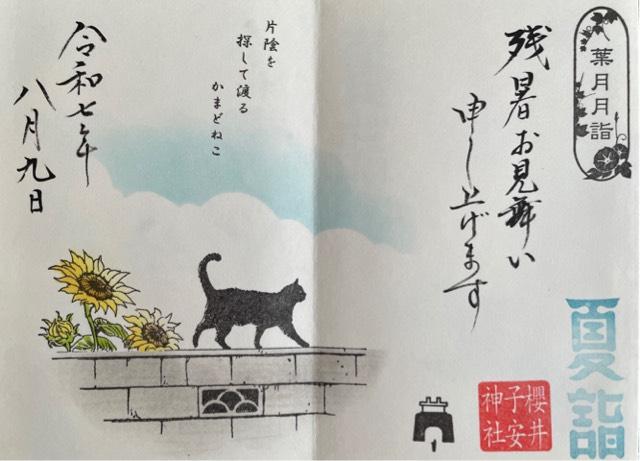 葉月月詣
残暑お見舞い
申し上げます
夏詣
櫻井
子安
神社
1
片陰を
探して渡る
かまどねこ
令和七年
八月九日